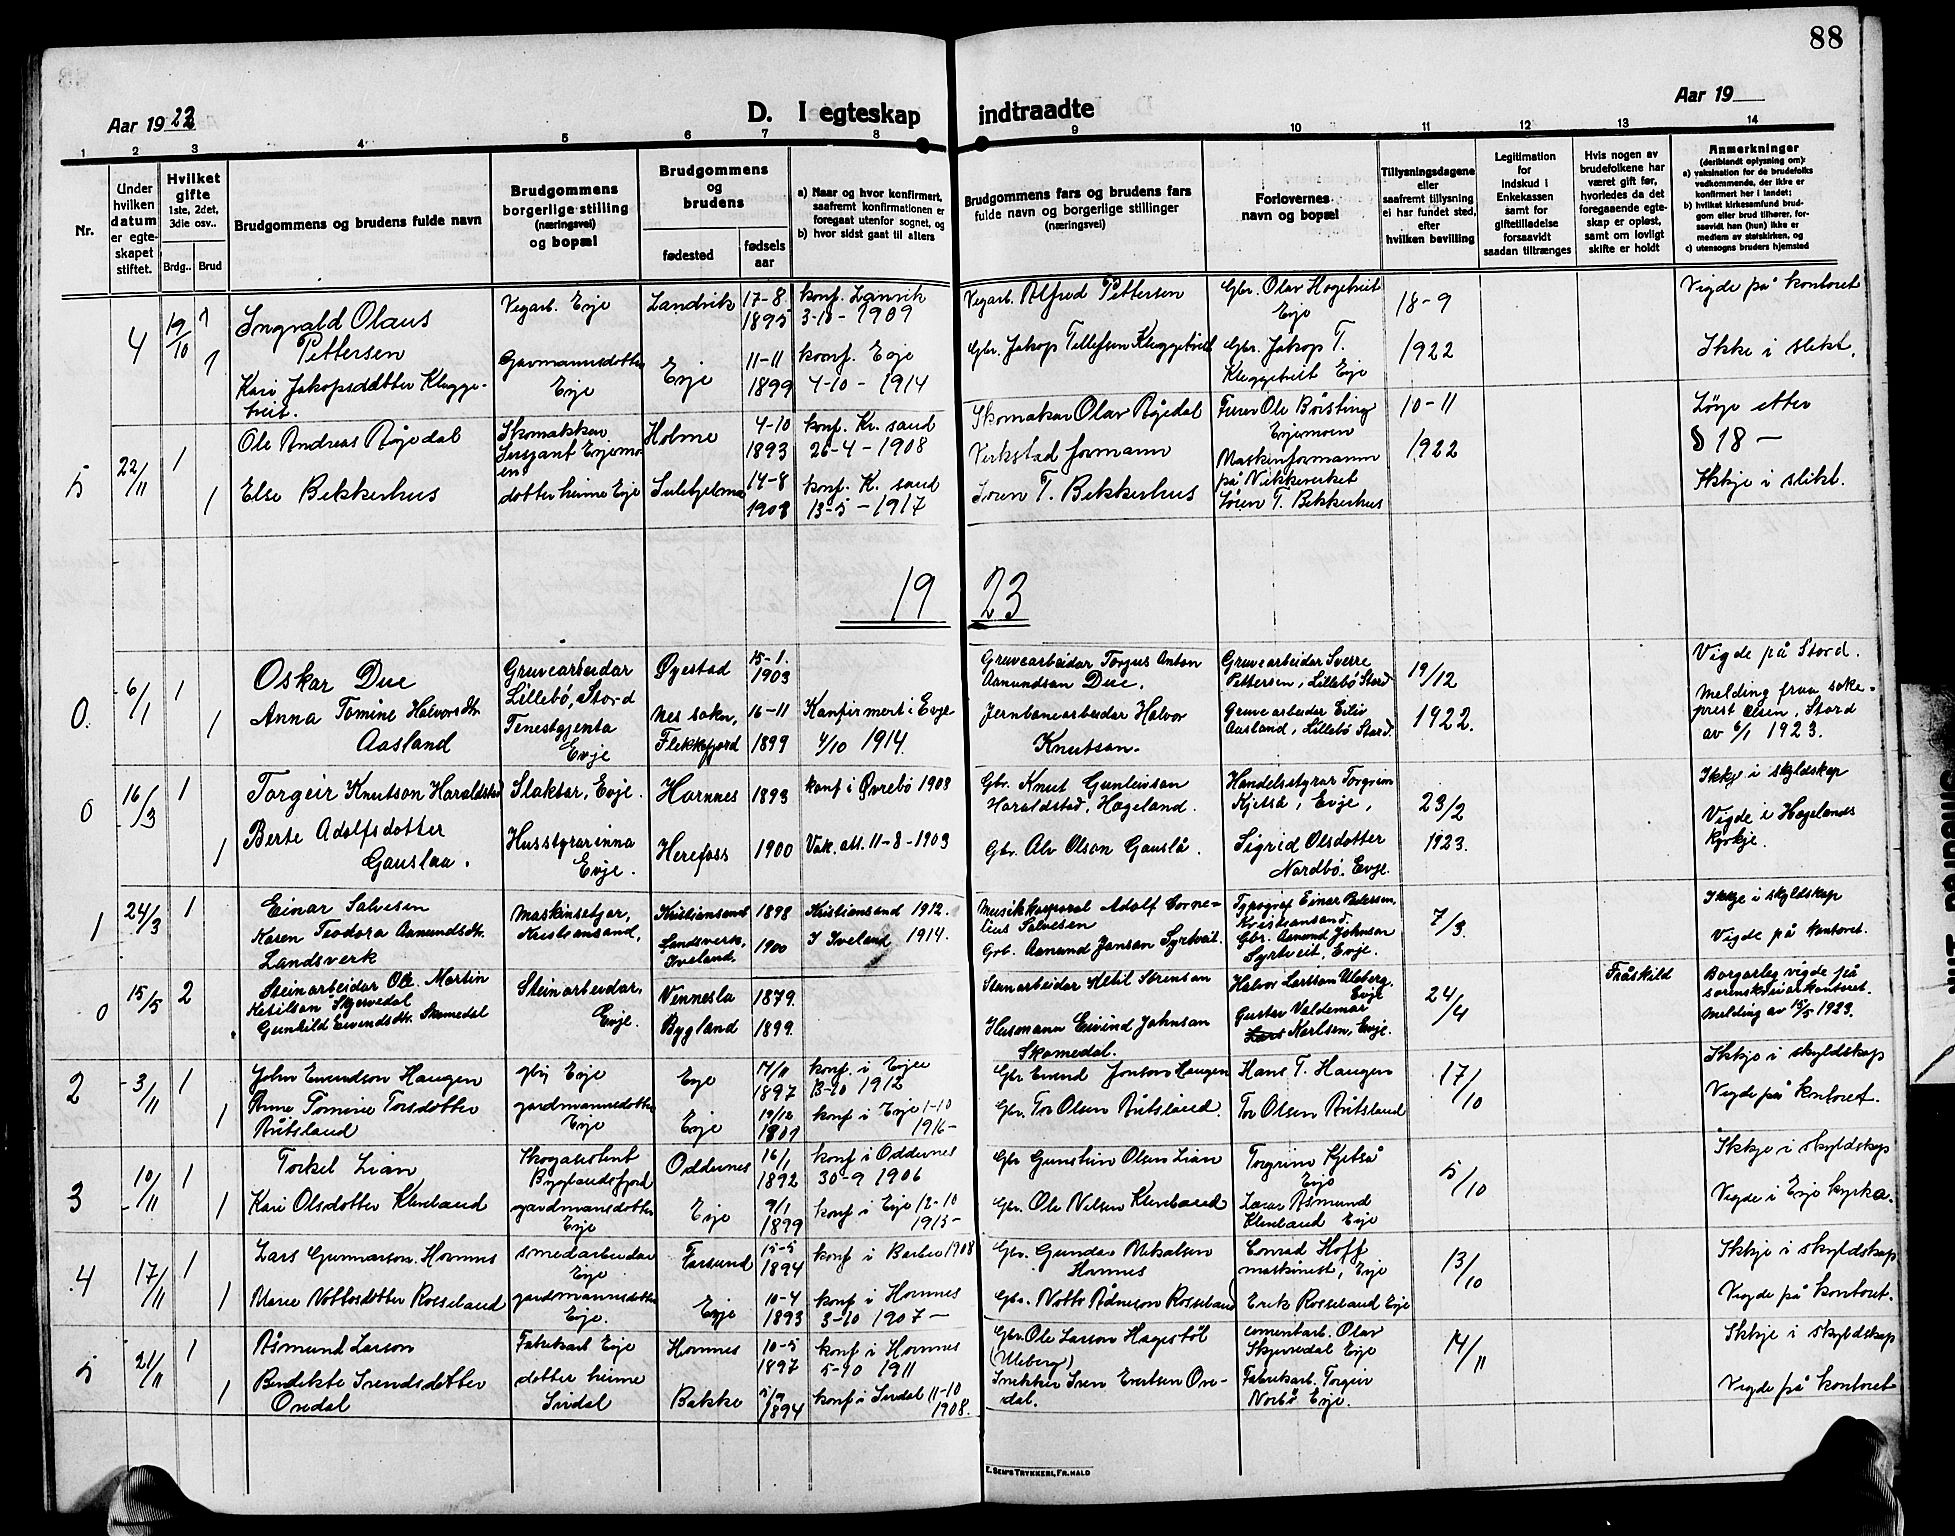 88
Aar 1922
D. I egteskap indtraadte
Aar 19
1 2 3 4 5 6 7 8 9 10 11 12 13 14
Nr.
Under hvilken datum er egteskapet stiftet.
Hvilket gifte 1ste, 2det, 3die osv..
Brdg.. Brud
Brudgommens og brudens fulde navn
Brudgommens borgerlige stilling (næringsvei) og bopæl
Brudgommens og brudens
fødested
fødselsaar
a) Naar og hvor konfirmert, saafremt konfirmationen er foregaat utenfor sognet, og
b) hvor sidst gaat til alters
Brudgommens fars og brudens fars fulde navn og borgerlige stillinger (næringsvei)
Forlovernes navn og bopæl
Tillysningsdagene eller saafremt tillysning ei har fundet sted, efter hvilken bevilling
Legitimation for Indskud i Enkekassen samt for giftetilladelse forsaavidt saadan tiltrænges
Hvis nogen av brudefolkene har været gift før, hvorledes da det foregaaende egteskap er opløst, samt om lovligt skifte er holdt
Anmerkninger
(deriblandt oplysning om):
a) vaksination for de brudefolks vedkommende, der ikke er konfirmert her i landet;
b) hvilket kirkesamfund brudgom eller brud tilhører, forsaavidt han (hun) ikke er medlem av statskirken, og
c) utensogns bruders hjemsted
4 19/10 1 Ingvald Olaus Pettersen Vegarb. Evje Landvik 17-8 1895 konf. Lanvik 3-10-1909 Vegarb. Alfred Pettersen Gbr. Olav Hogetveit Evje 18-9 Vigde på kontoret
1 Kari Jakopsdatter Kluggetveit. Garmannsdotter Evje Evje 11-11 1899 konf. Evje 4-10-1914 Gbr. Jakop Tellefsen Kluggetveit Gbr. Jakop T. Kluggetveit Evje 1922 Ikke i slikt.
5 22/11 1 Ole Andreas Røjedal Skomakker Sersjant Evjemoen Holme 4-10 1893 konf. Kr. sand 26-4-1908 Skomakar Olav Røjedal Furer Ole Børsting Evjemoen 10-11 Løyve etter § 18 -
1 Else Bekkerhus dotter heime Evje Sulitjelma 14-8 konf. K. sand 13-5-1917 Verkstad formann Søren T. Bekkerhus Maskinformann på Nikkelverket Søren T. Bekkerhus 1922 Ikkje i slikt.
19 23
0. 6/1 1 Oskar Due Gruvearbeidar Lillebö, Stord Øyestad 15-1. 1903 Gruvearbeidar Torjus Anton Aamundsan Due. Gruvearbeidar Sverre Pettersen, Lillebö Stord 19/12 Vigde på Stord.
1 Anna Tomine Halvorsdtr. Aasland Tenestgjenta Evje Nes sokn, Flekkefjord 16-11 1899 Konfirmert i Evje 4/10 1914. Jernbanearbeidar Halvor Knutson. Gruvearbeidar Eiliv Aasland, Lillebö Stord. 1922. Melding fraa sokeprest Olsen, Stord av 6/1 1923.
0 16/3 1 Torgeir Knutson Haraldstad Slaktar, Evje. Hornnes 1893 konf i Øvrebö 1908 Gbr. Knut Gunleivsan Haraldstad, Hægeland. Handelsstyrar Torgrim Kjetså, Evje, 23/2 Ikkje i skyldskap
1 Berte Adolfsdotter Gauslaa. Husstyrarinna Evje. Herefoss 1900 Vak. att. 11-8-1903 Gbr. Alv Olson Gauslå. Sigrid Olsdotter Nordbö, Evje. 1923. Vigde i Hægelands kyrkje.
1 24/3 1 Einar Salvesen Maskinsetjar, Kristiansand, Kristiansand 1898 Kristiansand 1912. Musikkorporal Adolf Cornelius Salvesen Typograf Einar Petersen, Kristiansand. 7/3. Ikkje i skyldskap
Karen Teodora Aamundsdtr. Landsverk Landsverk, Iveland. 1900 I Iveland 1914. Grb. Aamund Jonsan Syrtveit. Gbr. Aamund Johnsan Syrtveit, Evje. Vigde på kontoret.
0 15/5 2 Steinarbeidar Ole Martin Ketilson Skjevedal Steinarbeidar, Evje. Vennesla 1879. Stenarbeidar Ketil Sörenson Halvor Larsson Uleberg, Evje 24/4 Fråskild Borgarleg vigde på sorenskrivarkontoret. Melding av 15/5 1923.
Gunhild Eivendsdtr. Skomedal Bygland 1899. Husmann Eivind Johnsan Skomedal. Gustav Valdemar Karlsen, Evje.
2 3/11 1 John Evendson Haugen gbr Evje Evje 14/11 1897 konf. i Evje 13-10 1912 Gbr Evend Jonson Haugen Hans T. Haugen 17/10 Ikkje i skyldskap
1 Anne Tomine Torsdotter Råtsland gardmannsdotter Evje Evje 19/12 konf i Evje 1-10 1916- Gbr. Tor Olsen Råtsland. Tor Olsen Råtsland Vigde på kontoret.
3 10/11 1 Torkel Lian Skogassistent Byglandsfjord Oddernes 16/1 1892 konf i Oddernes 30-9 1906 Gbr Gunstein Olsen Lian Torgrim Kjetså Evje 5/10 Ikkje i skyldskap
1 Kari Olsdotter Kleveland gardmansdotter Evje Evje 9/1 1899 konf i Evje 12-10 1913- Gbr. Ole Nilsen Kleveland Lærar Åsmund Kleveland Evje Vigde i Evje kyrka.
4 17/11 1 Lars Gunnarson Hornnes smedarbeidar Evje Farsund 15-5 1894 konf i Barbu 1908 Gbr. Gundar Mikalsen Hornnes Conrad Hoff maskinist, Evje 13/10 Ikkje i skyldskap
1 Marie Nottosdotter Rosseland gardmannsdotter Evje. Evje 10-4 1893 konf i Hornnes 3-10 1907- Gbr. Notto Ånneson Rosseland Erik Rosseland Evje Vigde på kontoret.
5 21/11 1 Åsmund Larson Fabrikarb Evje Hornnes 10-5 1897 konf i Hornnes 5-10 1911 Gbr. Ole Larson Hagestöl (Uleberg) cementarb. Olav Skjevedal Evje 14/11 Ikkje i skyldskap
1 Bendikte Svendsdotter Ovedal dotter heime Sirdal Bakke 5/9 1894 konf i Sirdal 11-10 1908. Snekker Sven Evertsen Ovedal. Fabrikarb. Torgeir Norbö Evje. Vigde på kontoret
E. SEM'S TRYKKERI, FR.HALD